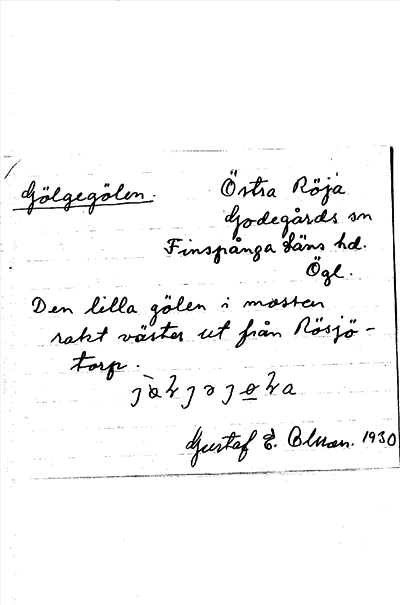 Gölgegölen.
Östra Röja
Godegårds sn
Finspånga läns hd.
Ögl.
Den lilla gölen i mossen
rakt väster ut från Rösjö-
torp.
Gustaf E. Olman. 1930